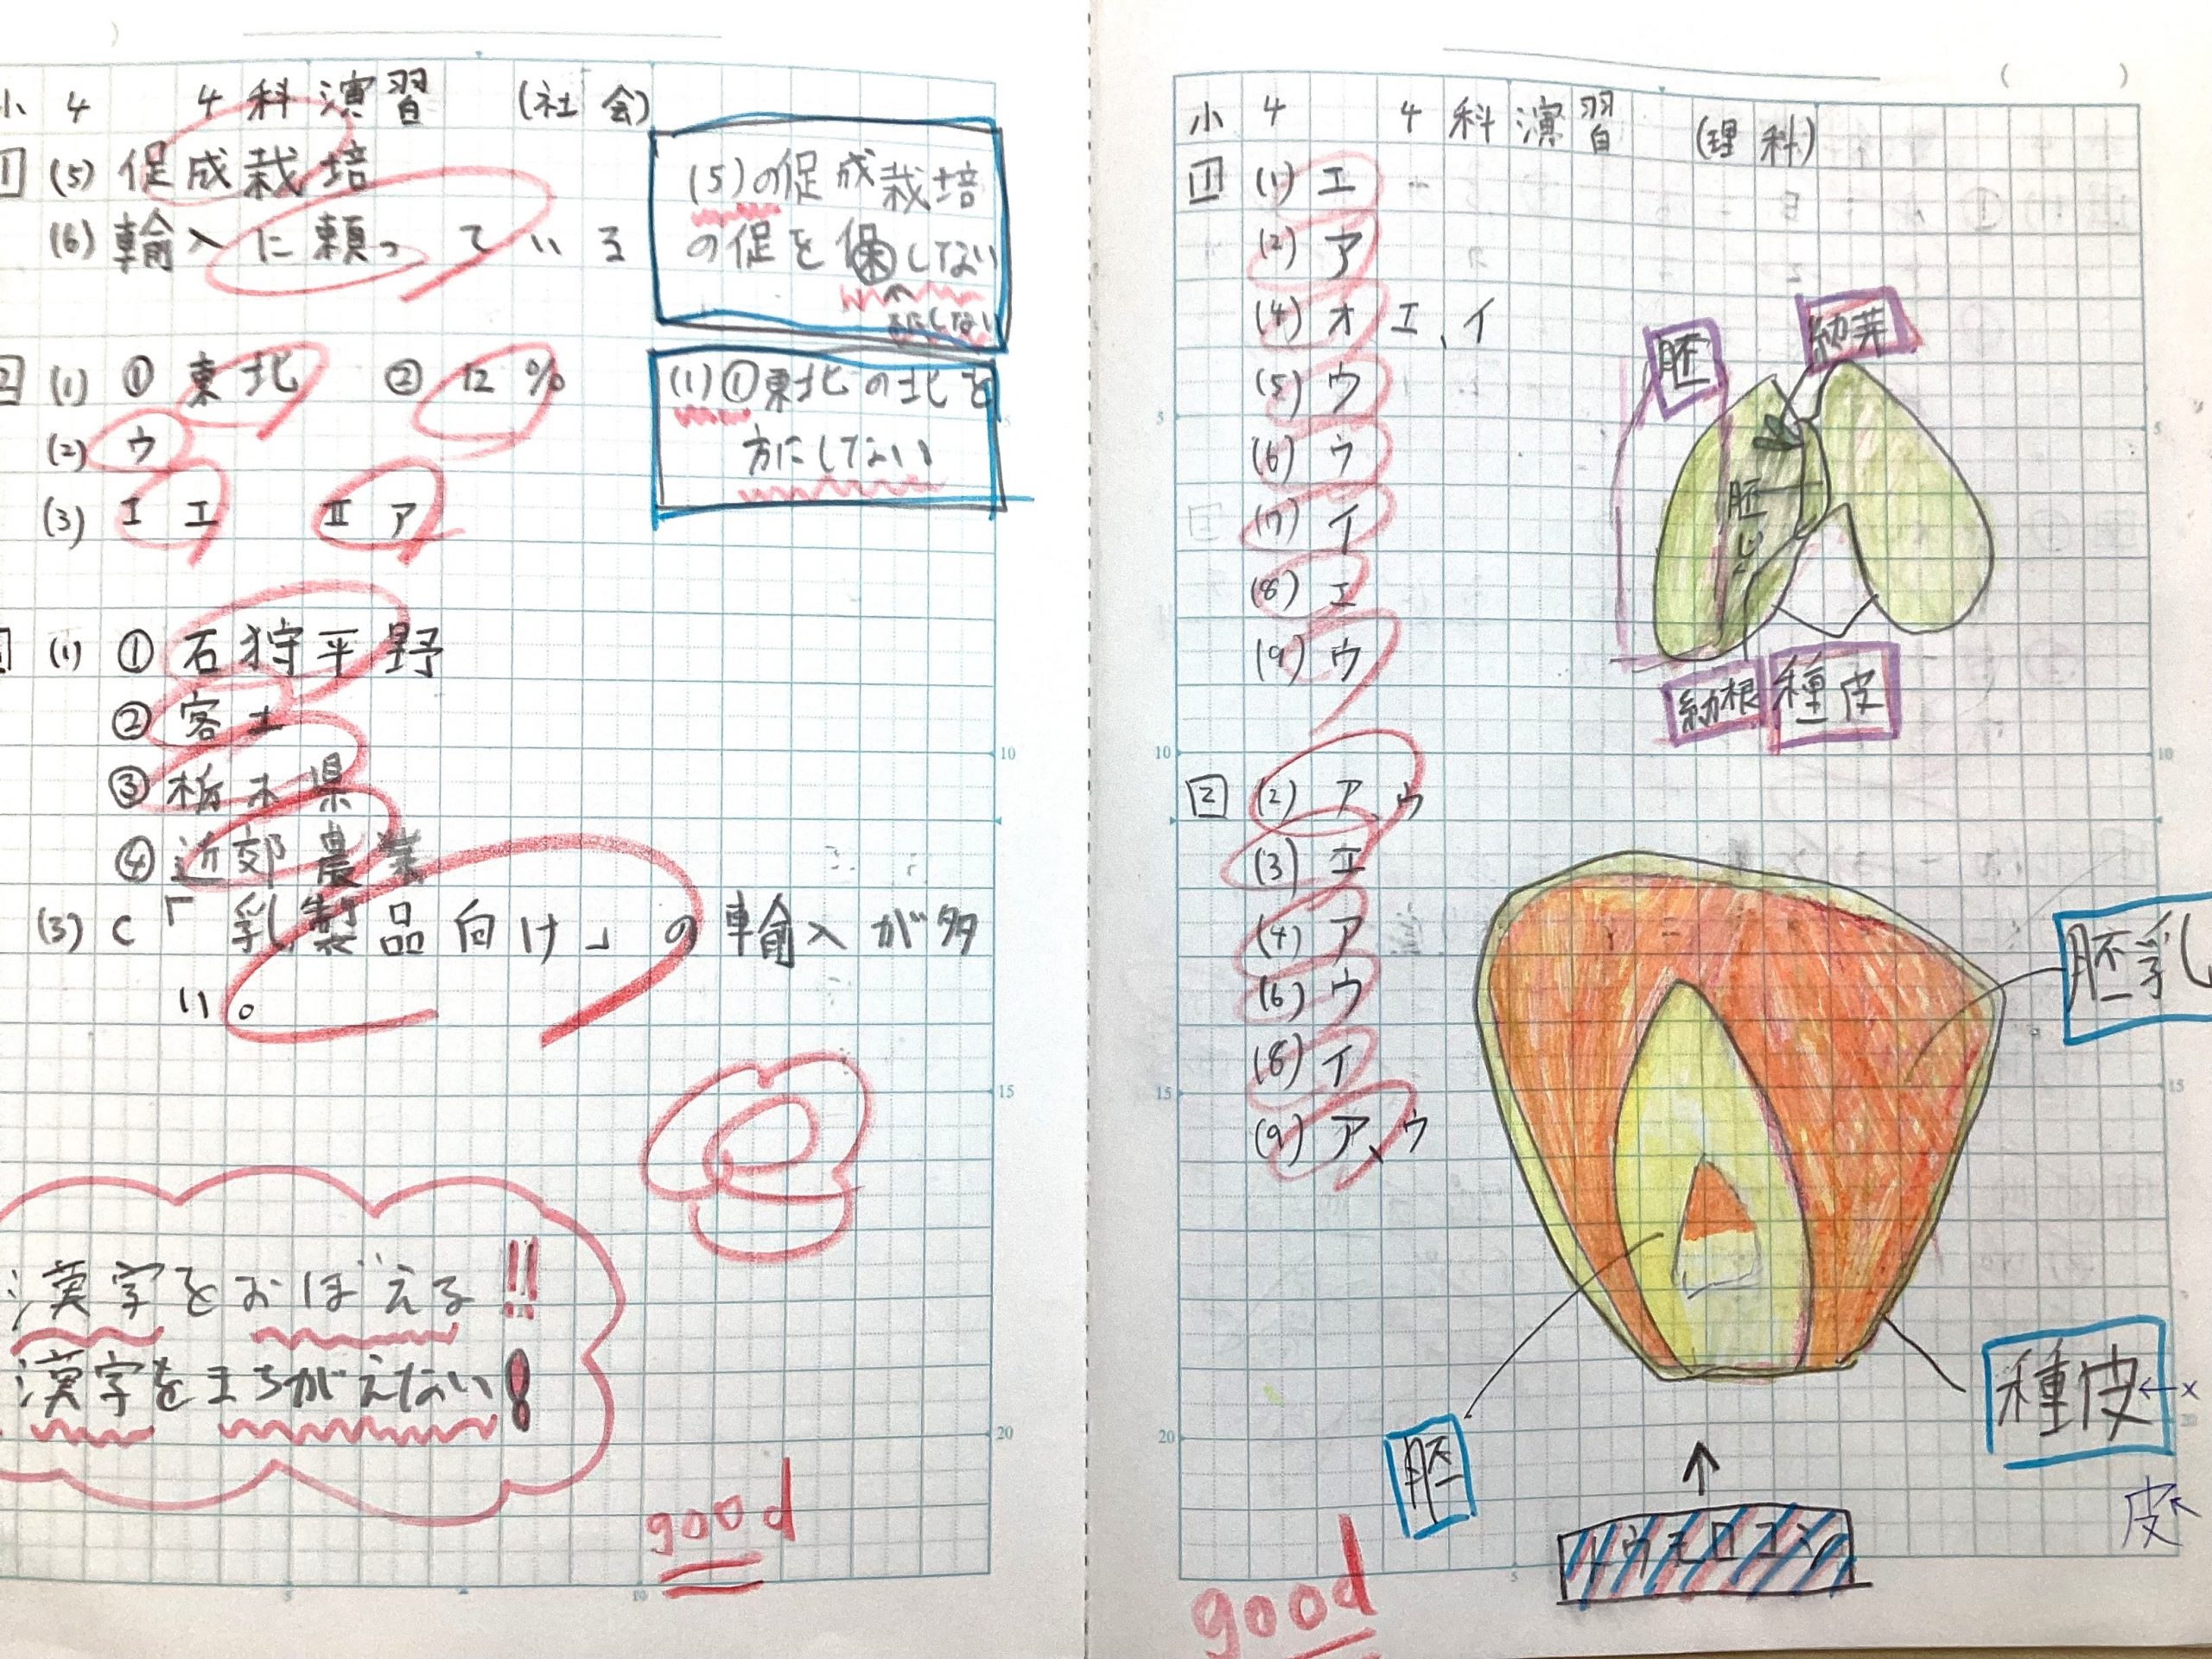 小4 4科演習 (社会)
1 (5) 促成栽培
(6) 輸入に頼っている
2 (1) ① 東北 ② 12%
(2) ウ
(3) I エ II ア
(1) ① 石狩平野
② 客土
③ 栃木県
④ 近郊農業
(3) C「乳製品向け」の輸入が多
い。
(5)の促成栽培
の促を保しない
にしない
(1)①東北の北を
方にしない
漢字をおぼえる!!
漢字をまちがえない!
good
小4 4科演習 (理科)
1 (1) エ
(2) ア
(4) オ エ、イ
(5) ウ
(6) ウ
(7) イ
(8) エ
(9) ウ
2 (2) ア、ウ
(3) エ
(4) ア
(6) ウ
(8) イ
(9) ア、ウ
胚
幼芽
胚じく
幼根
種皮
胚乳
種皮←×
皮
胚
↑
トウモロコシ
good
5
10
15
20
5
10
5
10
15
20
5
10
15
20
5